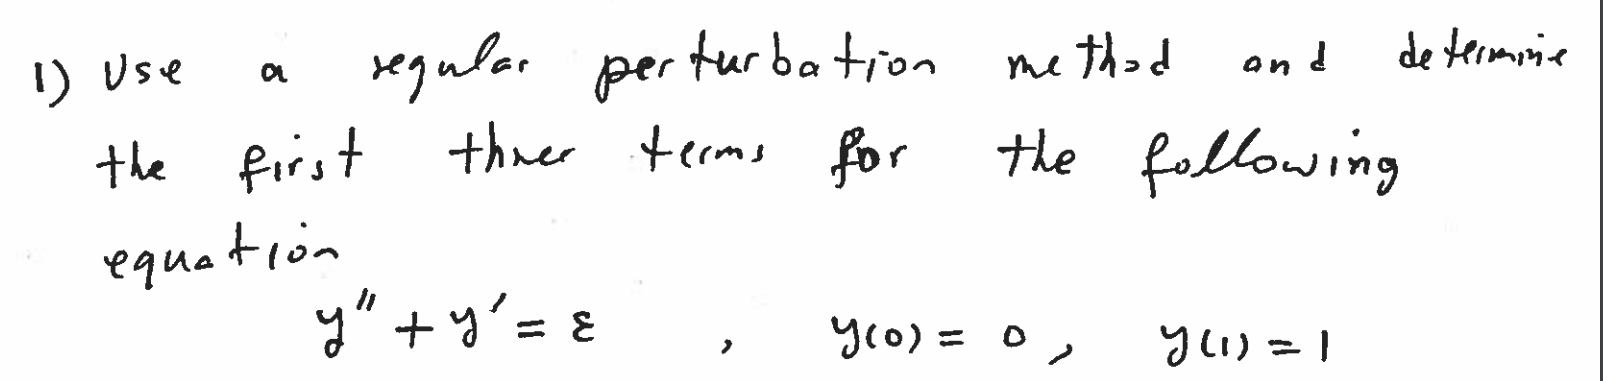 1) Use a regular perturbation method and determine
the first three terms for the following
equation
y" + y' = ε , y(0) = 0, y(1) = 1